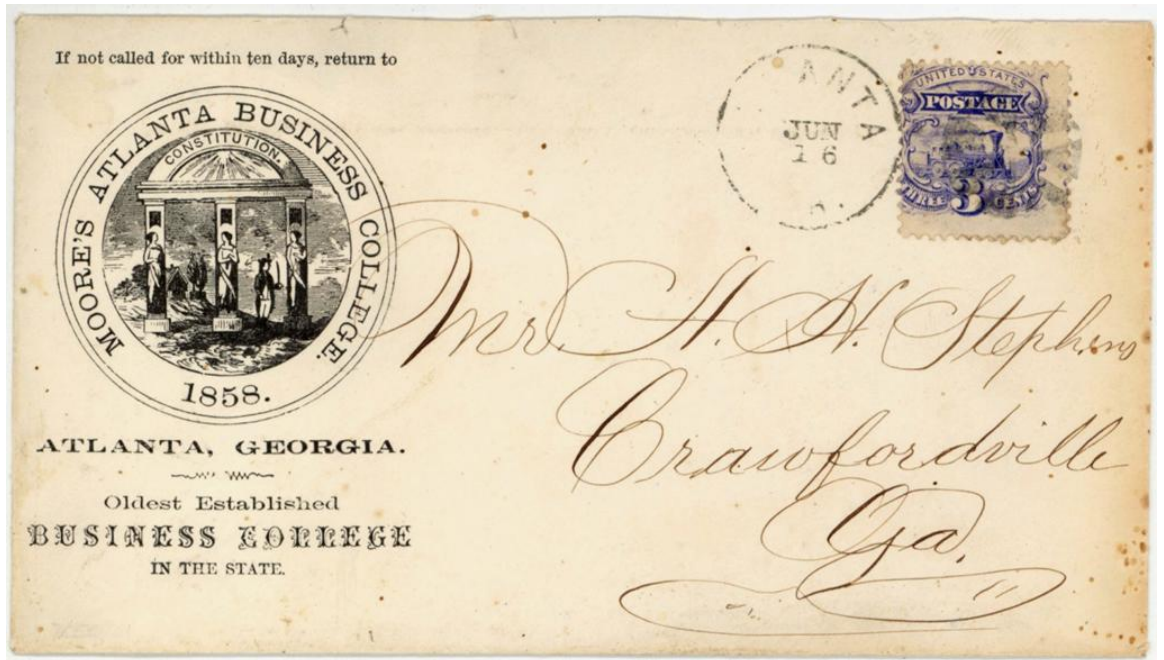 If not called for within ten days, return to
MOORE'S ATLANTA BUSINESS COLLEGE.
CONSTITUTION.
1858.
ATLANTA, GEORGIA.
Oldest Established
BUSINESS COLLEGE
IN THE STATE.
ANTA
JUN
16
UNITED STATES
POSTAGE
THREE 3 CENTS
Mr. A. H. Stephens
Crawfordville
Ga.